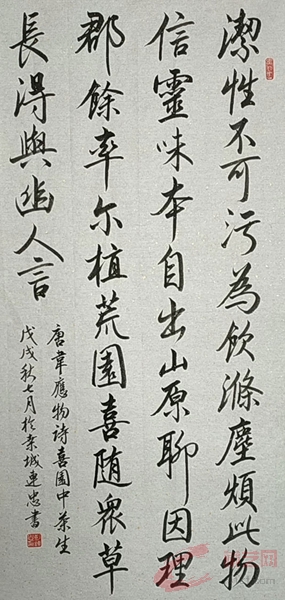 潔性不可污為飲滌塵煩此物
信靈味本自出山原聊因理
郡餘率尔植荒園喜随衆草
長得與幽人言
唐韋應物詩喜園中茶生
戊戌秋七月於城連忠書